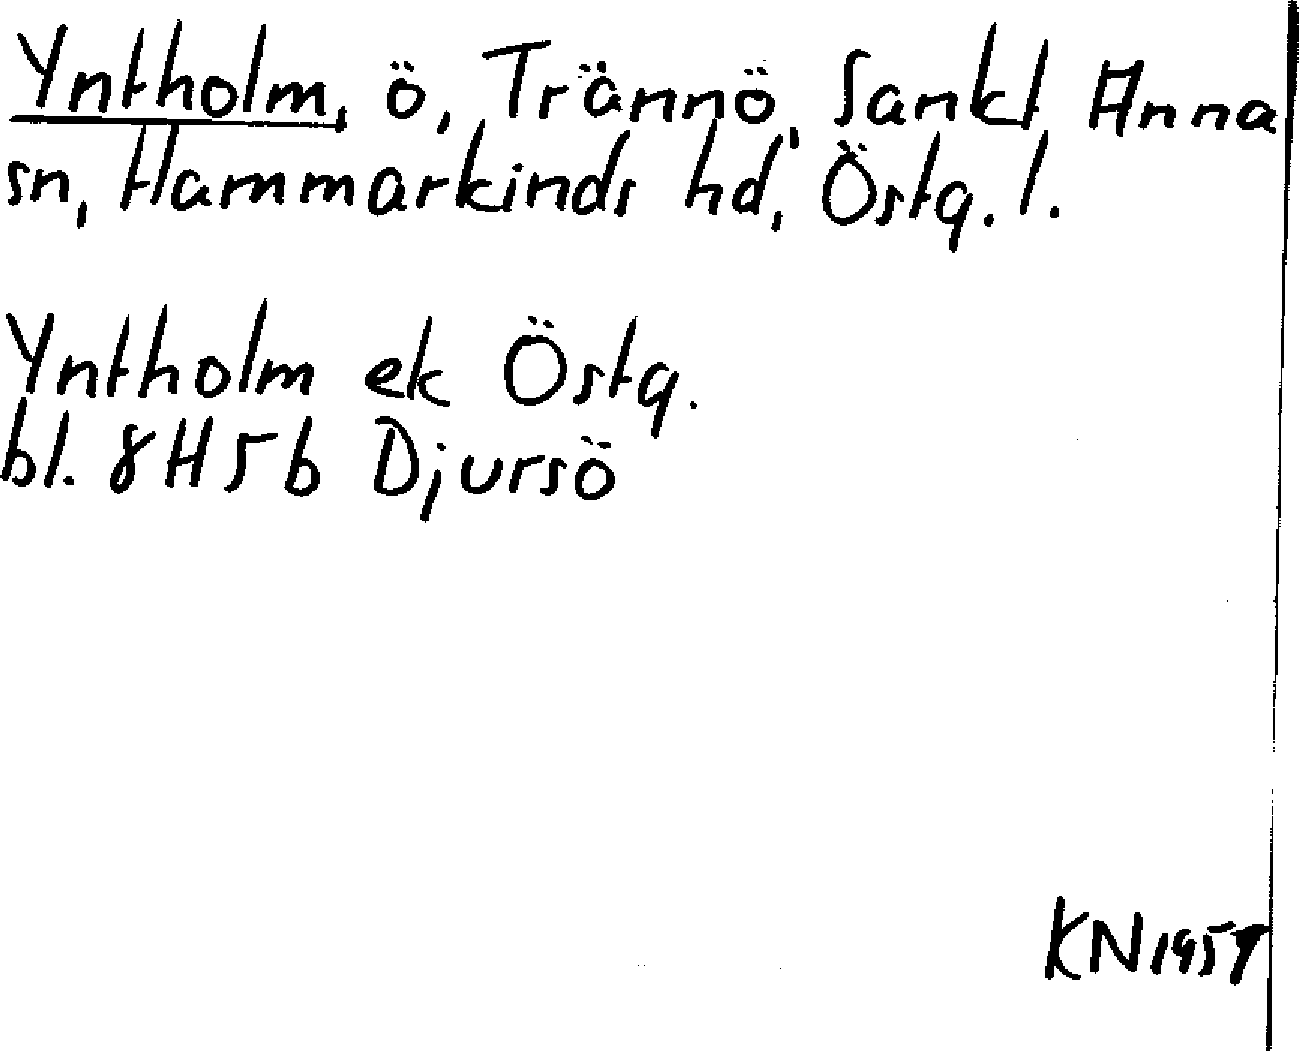 Yntholm, ö, Trännö, Sankt Anna
sn, Hammarkinds hd, Östg. l.
Yntholm ek Östg.
bl. 8H5b Djursö
KN 1957